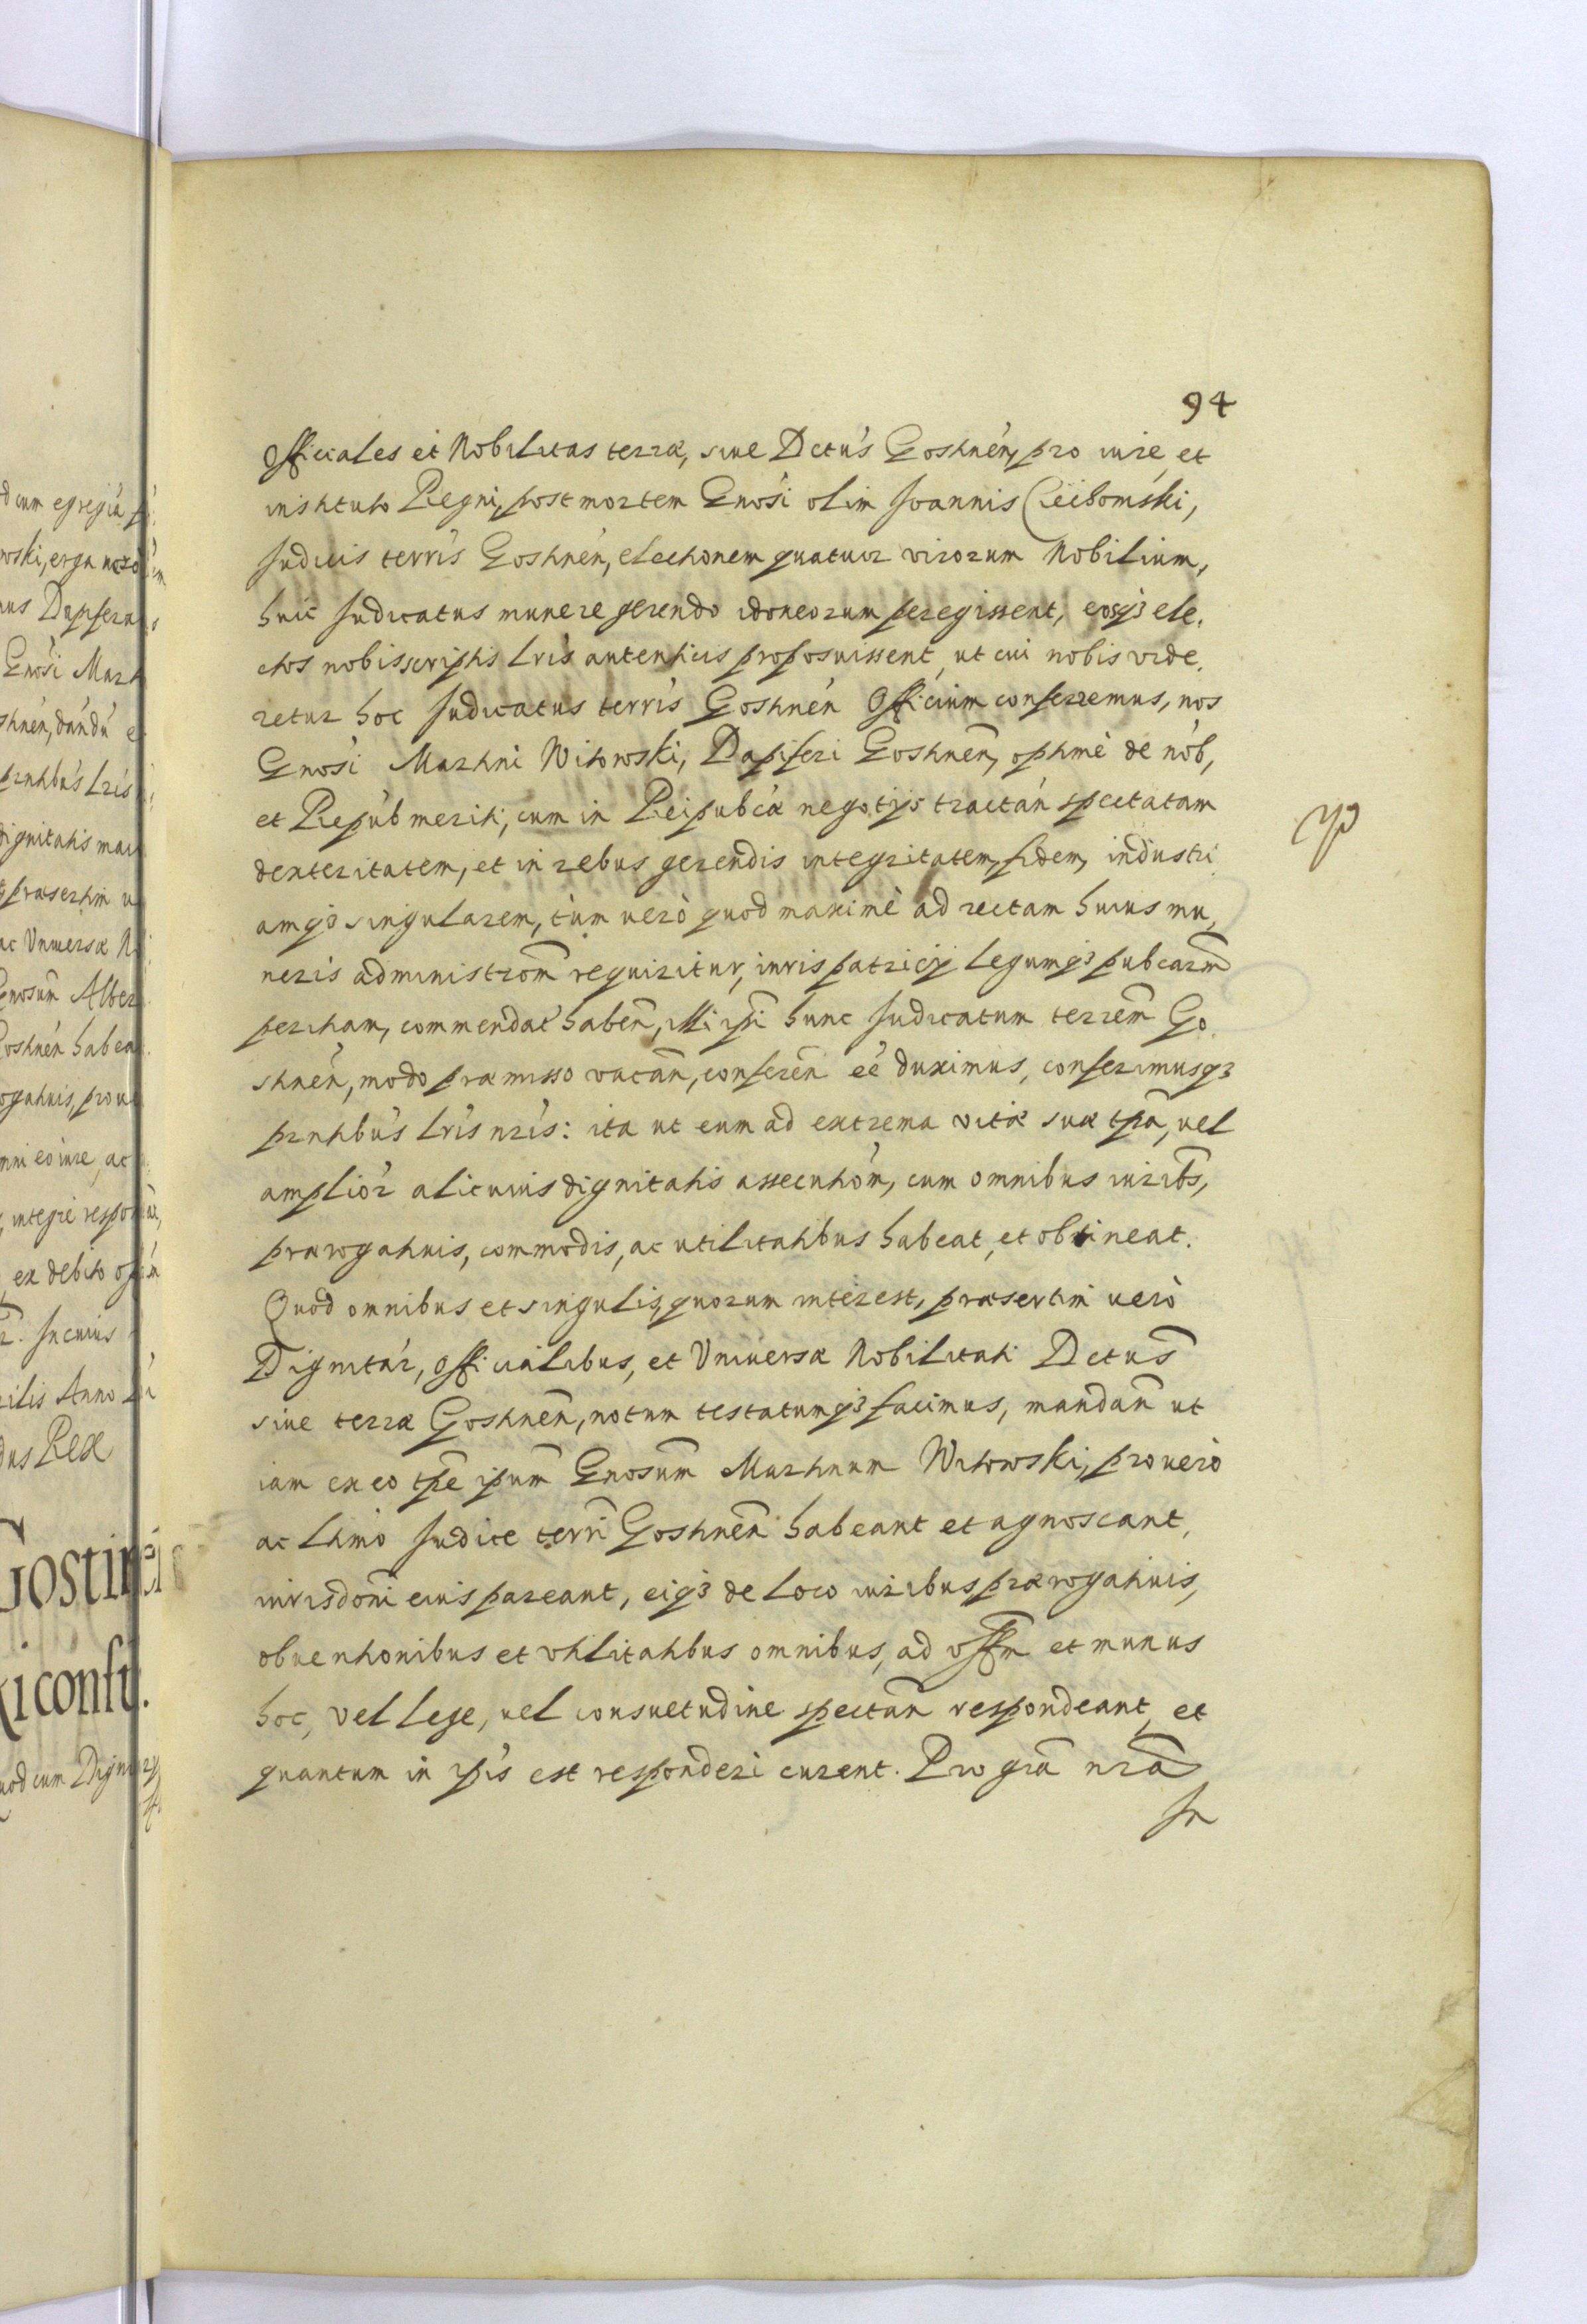 94
Officiales et Nobilitas terræ, siue Dctús Gostinén, pro iure, et
instituto Regni, post mortem Gnósi olim Joannis Cieibomski,
Judicis terrís Gostinén, electionem quatuor virorum Nobilium,
huic Judicatus munere gerendo idoneorum peregissent, eosq3 ele,
ctos nobis scriptis Lrís autenticis proposuissent, ut cui nobis vide,
retur hoc Judicatus terrís Gostinén Officium conferremus, nos
Gnósi Martini Witowski, Dapiferi Gostinen̄, optimè de nób,
et Repúb meriti, cum in Reipubcæ negotijs tractán spectatam
dexteritatem, et in rebus gerendis integritatem, fidem, industri
amq3 singularem, tùm uerò quod maximè ad rectam huius mu,
neris administrom̄ requiritur, iuris patricij legumq3 pubcarm̄
peritiam, commendat haben̄, illi ipi̅ hunc Judicatum terrem̄ Go,
stinén, modo præmisso vacan̄, conferen̄ eé duximus, conferimusq3
prntibús Lrís nrís: ita ut eum ad extrema vitæ suæ tpa̅, vel
ampliór alicuius dignitatis assecutióm, cum omnibus iurib̄s,
prærogatiuis, commodis, ac utilitatibus habeat, et obtineat.
Quod omnibus et singulis, quorum interest, præsertim uerò
Dignitár, Officialibus, et Vniuersæ Nobilitati Dctus̄
siue terræ Gostinen̄, notum testatumq3 facimus, mandan̄ ut
iam ex eo tpe̅ ipum̄ Gnosum̄ Martinum Witowski, pro uerò
ac Ltimo Judice terri̅ Gostinen̄ habeant et agnoscant,
iurisdoni̅ eius pareant, eiq3 de loco iuribus prærogatiuis,
obuentionibus et vtilitatibus omnibus, ad offm̄ et munus
hoc, vel lege, uel consuetudine spectan̄ respondeant, et
quantum in ipís est responderi curent. Pro gra̅ nra̅
In